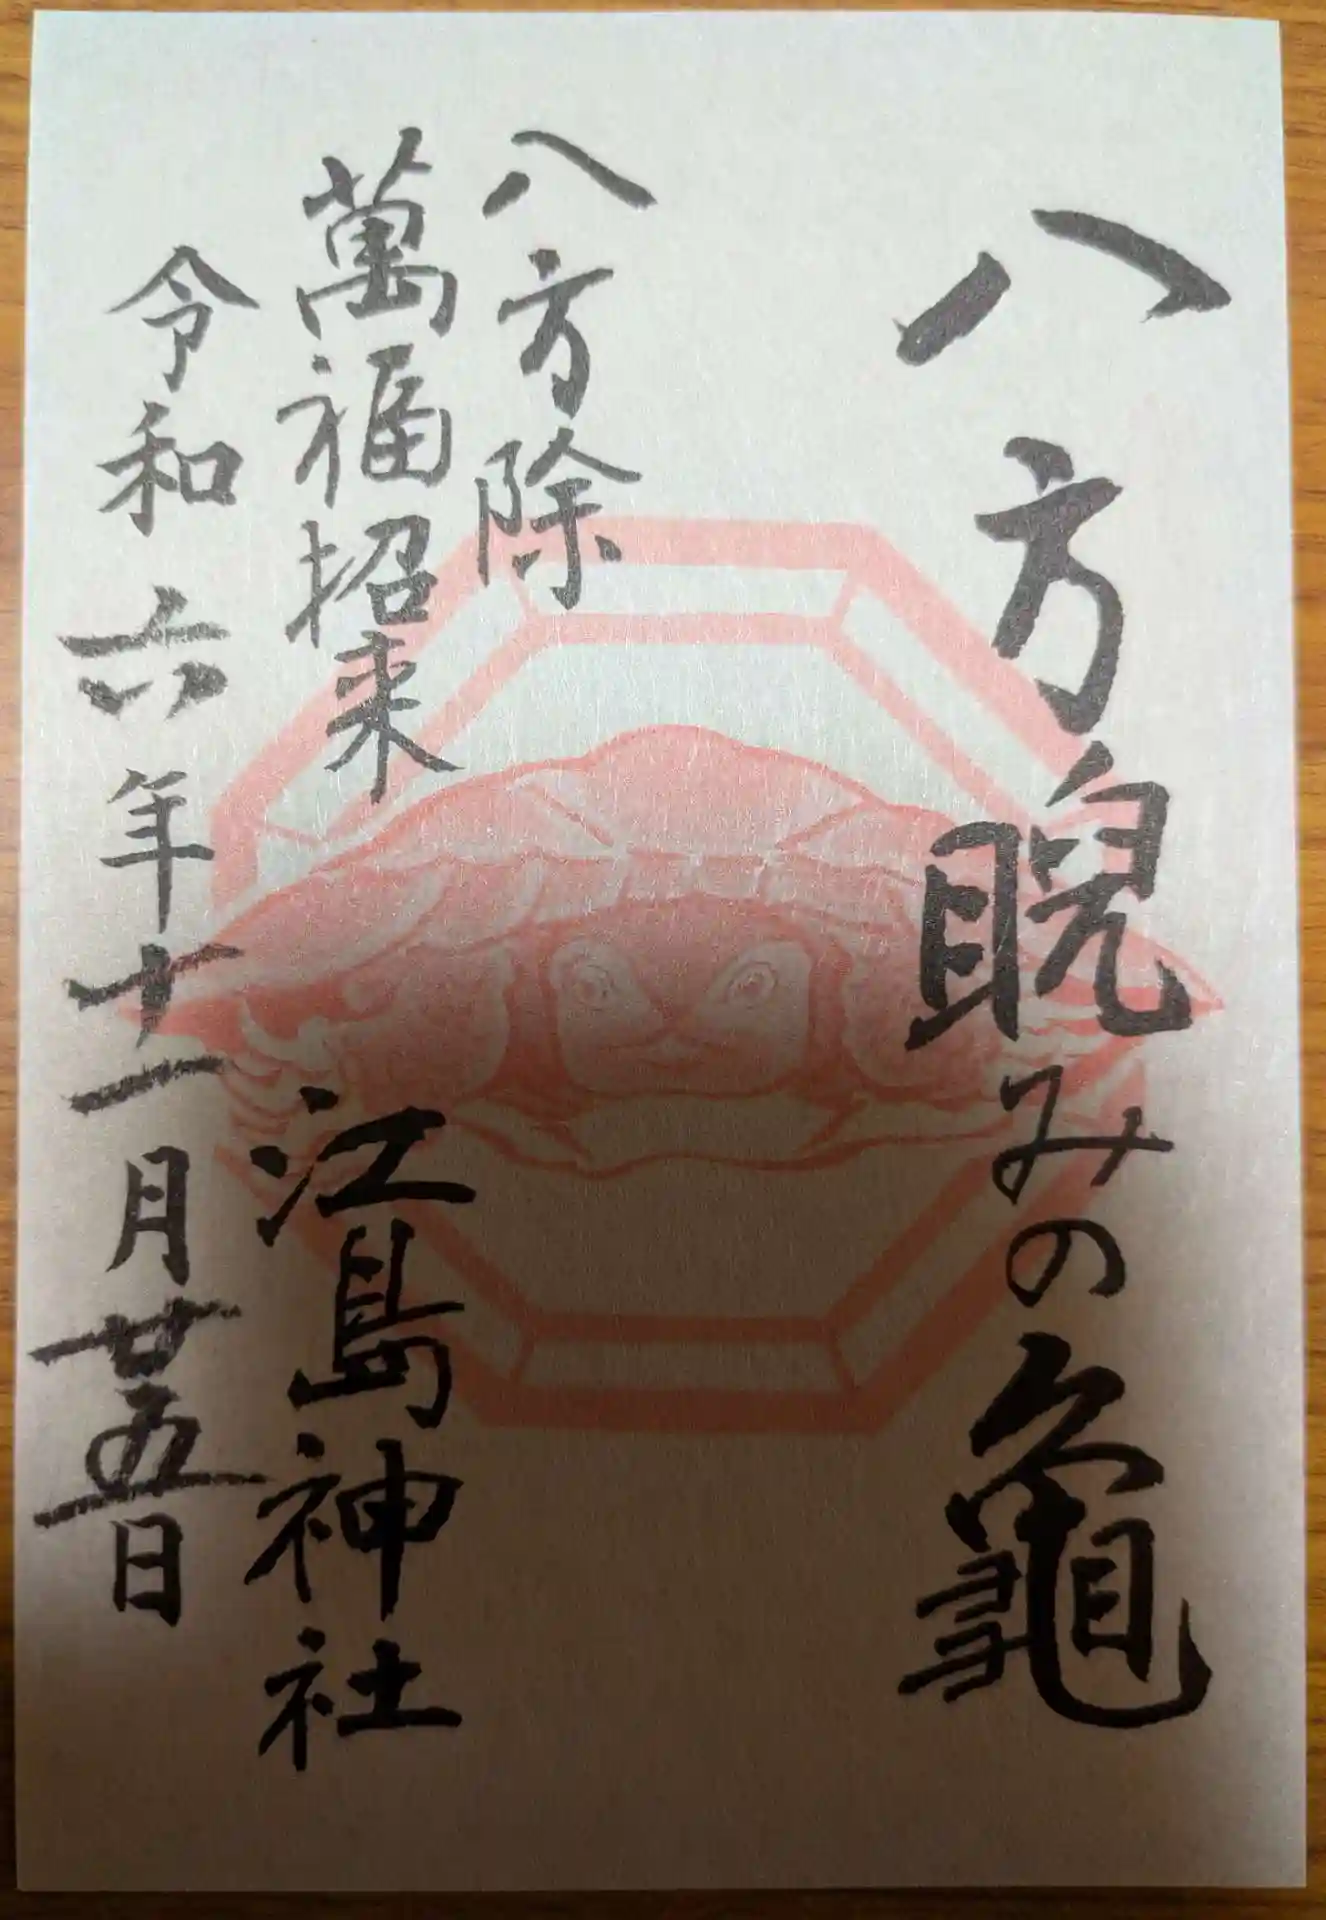 八方睨みの龜
八方除
萬福招来
江島神社
令和六年十一月廿五日